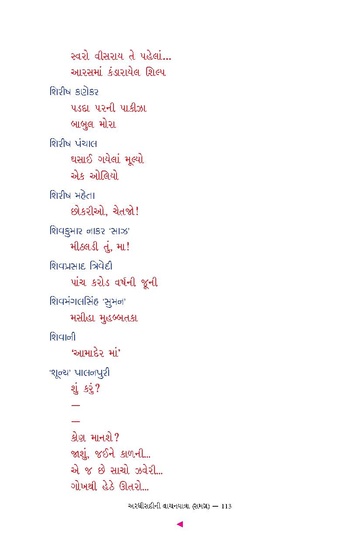 સ્વરો વીસરાય તે પહેલાં...
આરસમાં કંડારાયેલ શિલ્પ
શિરીષ કણેકર
પડદા પરની પાકીઝા
બાબુલ મોરા
શિરીષ પંચાલ
ઘસાઈ ગયેલાં મૂલ્યો
એક ઓલિયો
શિરીષ મહેતા
છોકરીઓ, ચેતજો!
શિવકુમાર નાકર ‘સાઝ’
મીઠલડી તું, મા!
શિવપ્રસાદ ત્રિવેદી
પાંચ કરોડ વર્ષની જૂની
શિવમંગલસિંહ ‘સુમન’
મસીહા મુહબ્બતકા
શિવાની
‘આમાદેર માં’
‘શૂન્ય’ પાલનપુરી
શું કરું?
—
—
કોણ માનશે?
જાશું, જઈને કાળની...
એ જ છે સાચો ઝવેરી...
ગોખથી હેઠે ઊતરો...
અરધીસદીની વાચનયાત્રા (સમગ્ર) — 113